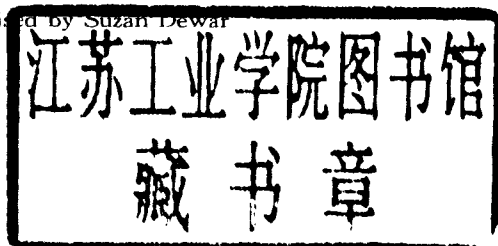 sed by Suzan Dewar
江苏工业学院图书馆
藏书章